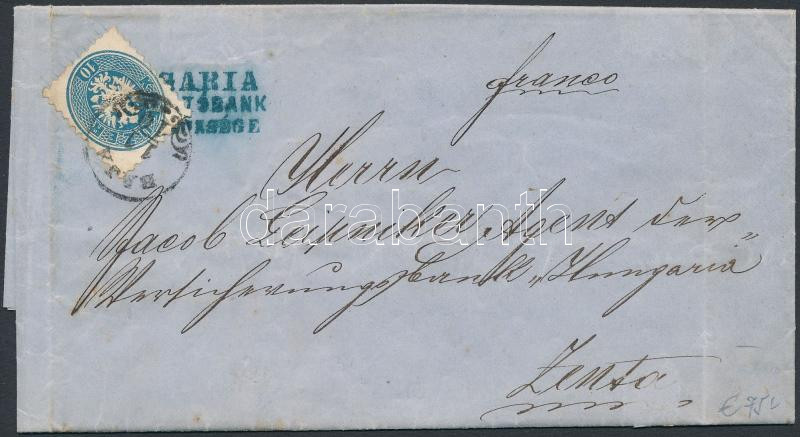 GARIA
TSBANK
KSÉGE
franco
Herrn
Jacob Agent der
Versicherungsbank „Hungaria"
Zenta
10
darabanth
€ 75